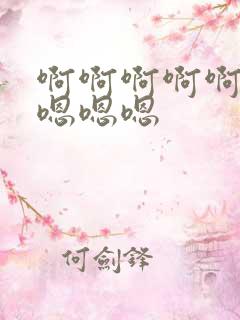 啊啊啊啊啊
嗯嗯嗯
何劍鋒